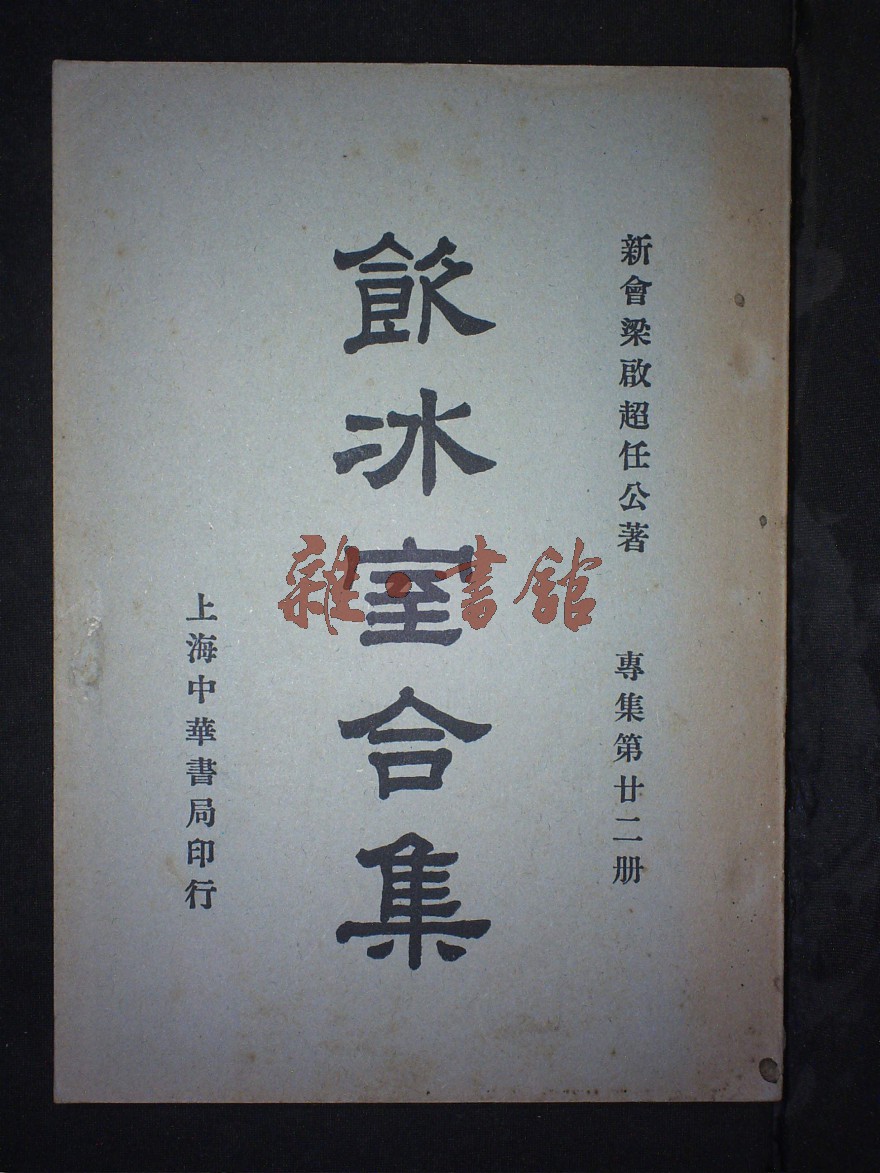 新會梁啟超任公著　專集第廿二册
飲冰室合集
上海中華書局印行
雜·書館